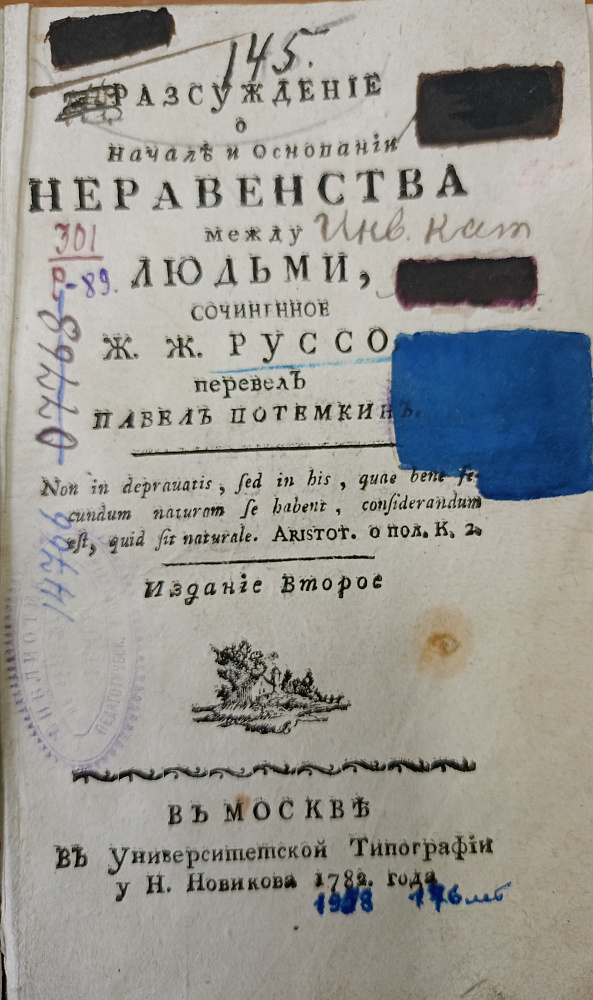 145.
РАЗСУЖДЕНІЕ
о
Началѣ и Основаніи
НЕРАВЕНСТВА
между Инв. кат
ЛЮДЬМИ,
301
Р-89.
СОЧИНЕННОЕ
Ж. Ж. РУССО
перевелЪ
ПАВЕЛЪ ПОТЕМКИНЪ.
Non in deprauatis, ſed in his, quae bene ſe-
cundum naturam ſe habent, conſiderandum
eſt, quid ſit naturale. ARISTOT. о пол. К. 2.
Изданіе Второе
БИБЛИОТЕ
ПЕДАГОГИЧЕСК.
ВЪ МОСКВѢ
ВЪ Университетской Типографіи
у Н. Новикова 1782. года
1958 176 лет